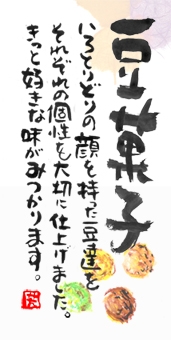 豆菓子
いろとりどりの顔を持った豆達を
それぞれの個性を大切に仕上げました。
きっと好きな味がみつかります。